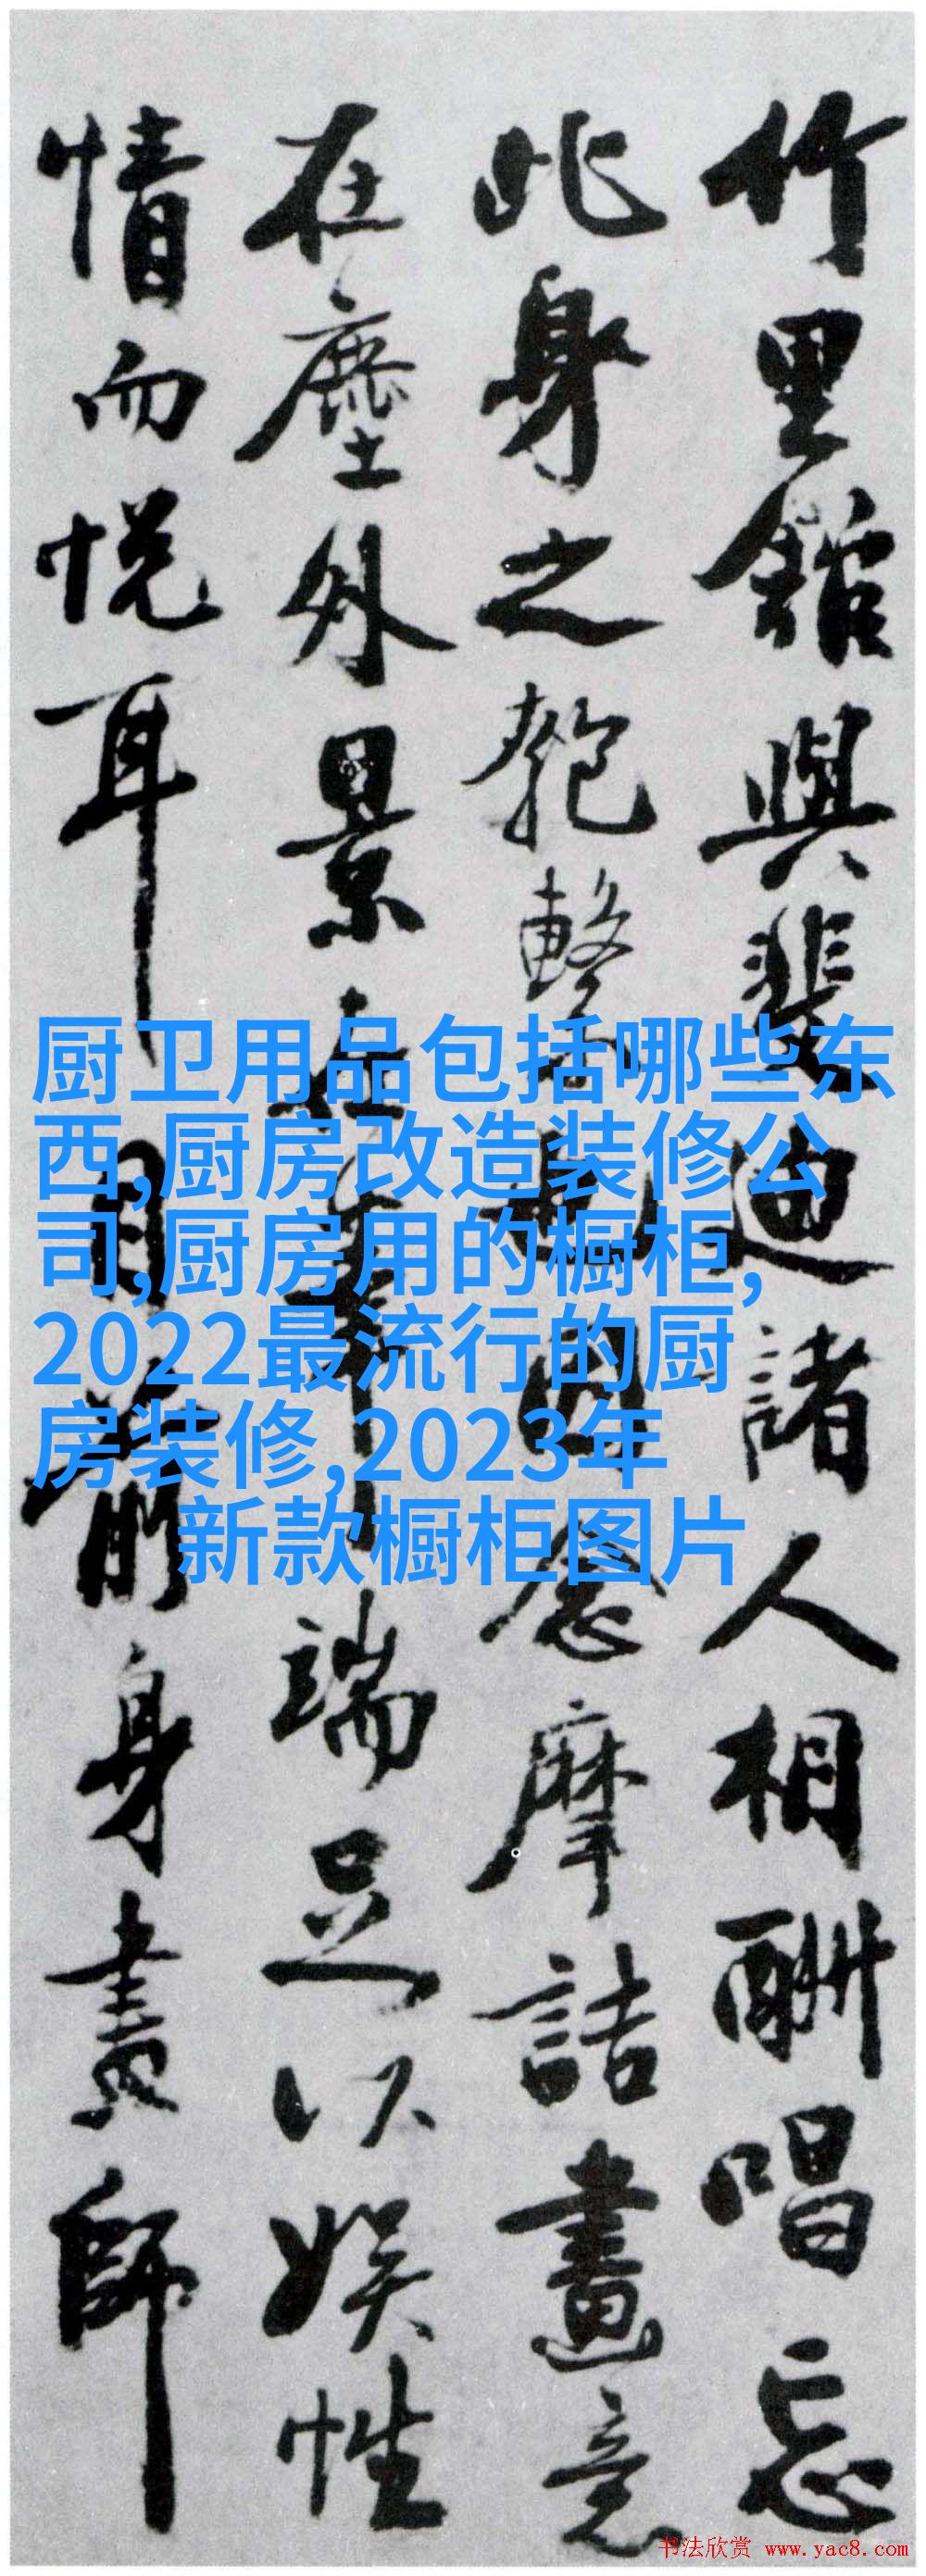 竹里館與裴迪諸人相酬唱忘
此身之匏繫因念摩詰畫意
在塵外景在筆端足以娛性
情而悦耳目前身畫師
厨卫用品包括哪些东
西,厨房改造装修公
司,厨房用的橱柜,
2022最流行的厨
房装修,2023年
新款橱柜图片
书法欣赏 www.yac8.com